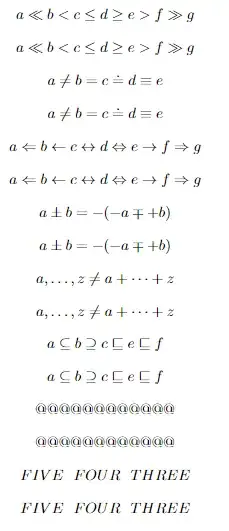 a ≪ b < c ≤ d ≥ e > f ≫ g
a ≪ b < c ≤ d ≥ e > f ≫ g
a ≠ b = c ≐ d ≡ e
a ≠ b = c ≐ d ≡ e
a ⇐ b ← c ↔ d ⇔ e → f ⇒ g
a ⇐ b ← c ↔ d ⇔ e → f ⇒ g
a ± b = −(−a ∓ +b)
a ± b = −(−a ∓ +b)
a, . . . , z ≠ a + ⋯ + z
a, . . . , z ≠ a + ⋯ + z
a ⊆ b ⊇ c ⊑ e ⊑ f
a ⊆ b ⊇ c ⊑ e ⊑ f
@@@@@@@@@@@@
@@@@@@@@@@@@
FIVE FOUR THREE
FIVE FOUR THREE